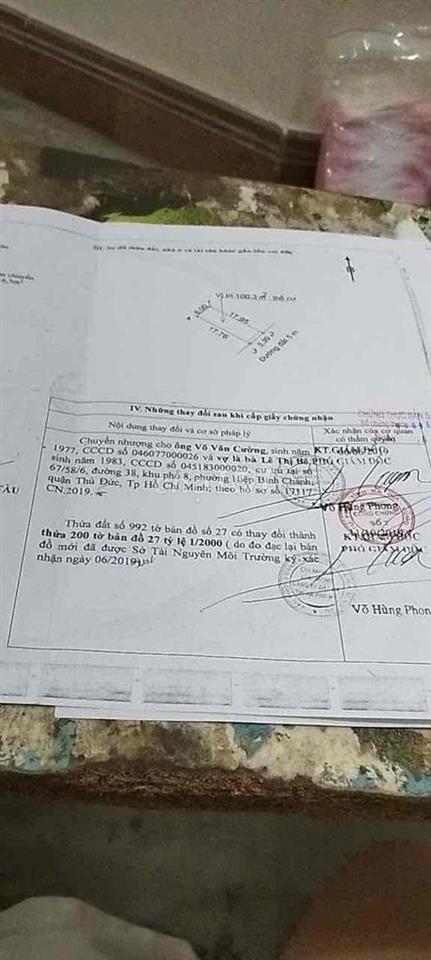 III. Sơ đồ thửa đất, nhà ở và tài sản khác gắn liền với đất
Vị trí: 100.3 m² thổ cư
6.00
17.95
17.76
5.30
Đường đất 5 m
IV. Những thay đổi sau khi cấp giấy chứng nhận
Nội dung thay đổi và cơ sở pháp lý
Xác nhận của cơ quan
có thẩm quyền
Chuyển nhượng cho ông Võ Văn Cường, sinh năm
1977, CCCD số 046077000026 và vợ là bà Lê Thị Bê,
sinh năm 1983, CCCD số 045183000020, cư trú tại số
67/58/6, đường 38, khu phố 8, phường Hiệp Bình Chánh,
quận Thủ Đức, Tp Hồ Chí Minh; theo hồ sơ số 17117
CN.2019.
KT.GIÁM ĐỐC
PHÓ GIÁM ĐỐC
Võ Hùng Phong
Thửa đất số 992 tờ bản đồ số 27 có thay đổi thành
thửa 200 tờ bản đồ 27 tỷ lệ 1/2000 ( do đo đạc lại bản
đồ mới đã được Sở Tài Nguyên Môi Trường ký xác
nhận ngày 06/2019)
PHÓ GIÁM ĐỐC
Võ Hùng Phon